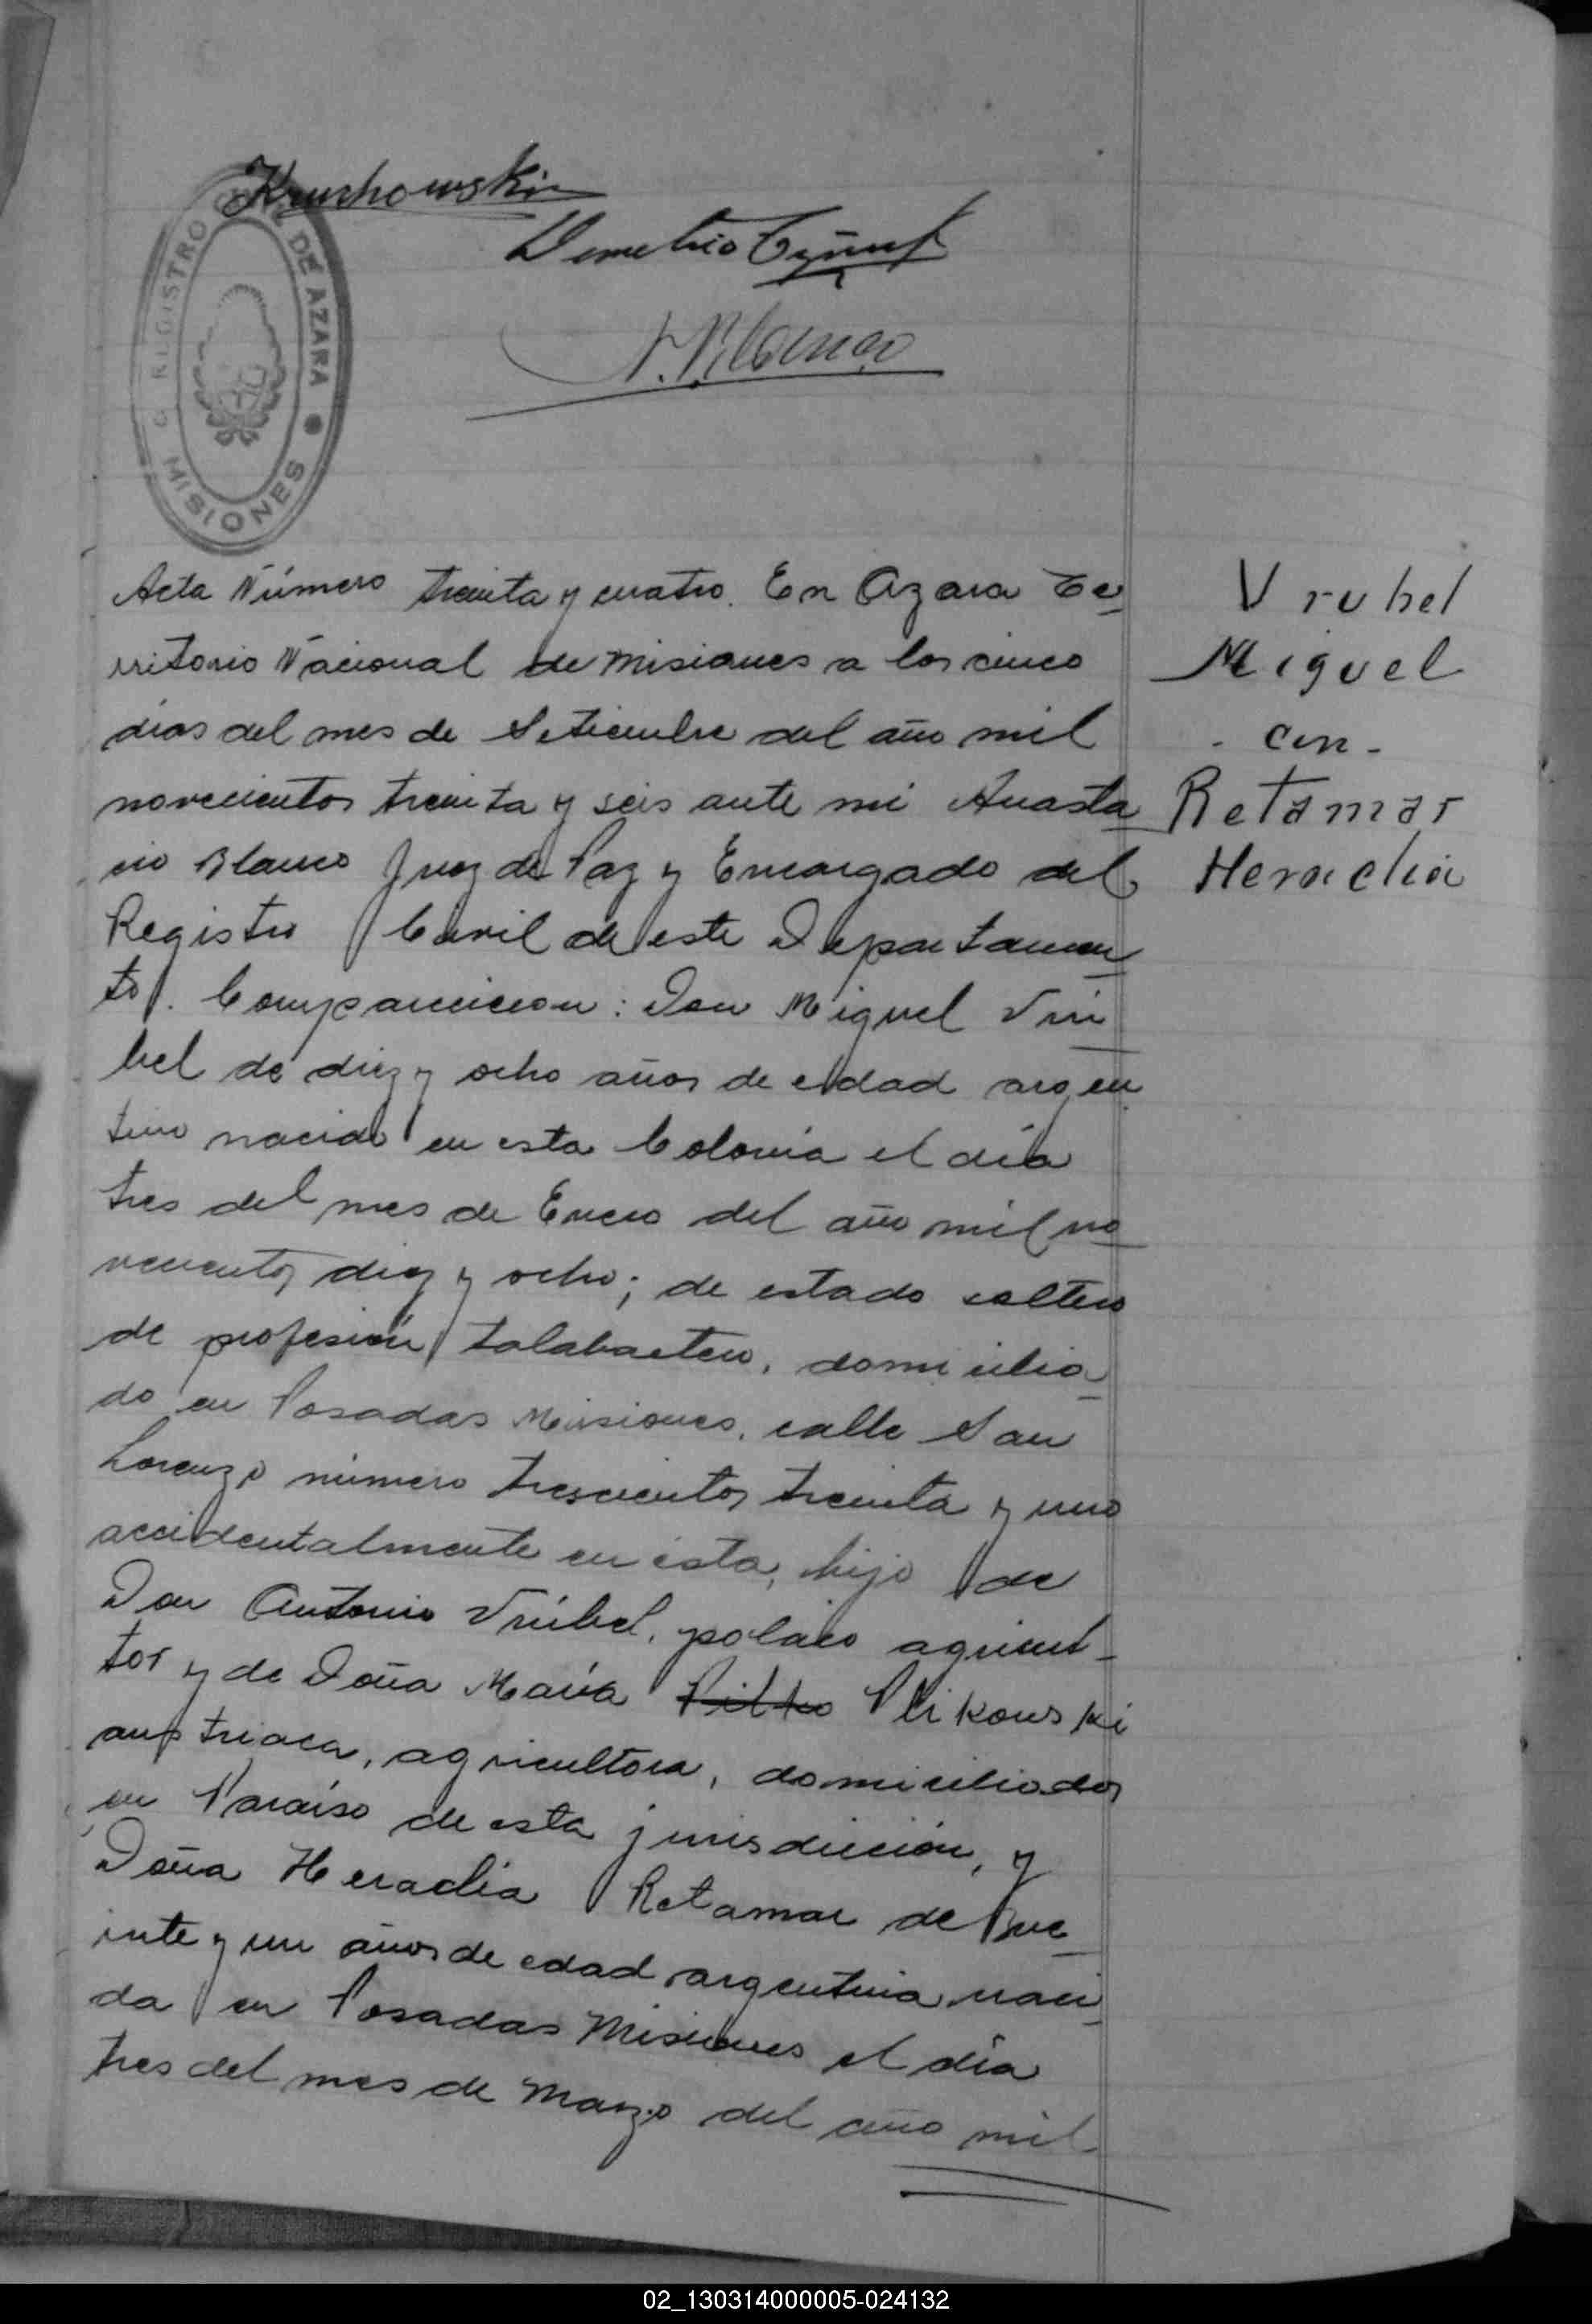 Kruchowski
Demetrio
A. Blanco
REGISTRO DE AZARA
MISIONES
Acta Número treinta y cuatro. En Azara Te-
rritorio Nacional de Misiones a los cinco
días del mes de Setiembre del año mil
novecientos treinta y seis ante mi Anasta-
cio Blanco Juez de Paz y Encargado del
Registro Civil de este Departamen-
to. Comparecieron: Don Miguel Vrú-
bel de diez y ocho años de edad argen-
tino nacido en esta Colonia el día
tres del mes de Enero del año mil no-
vecientos diez y ocho; de estado soltero
de profesión talabartero, domicilia-
do en Posadas Misiones, calle San
Lorenzo número trescientos treinta y uno
accidentalmente en ésta, hijo de
Don Antonio Vrúbel, polaco agricul-
tor y de Doña María Plikowski
austriaca, agricultora, domiciliados
en Paraíso de esta jurisdicción, y
Doña Heraclia Retamar de Ve-
inte y un años de edad argentina naci-
da en Posadas Misiones el día
tres del mes de Marzo del año mil
Vrubel
Miguel
- con -
Retamar
Heraclia
02_130314000005-024132